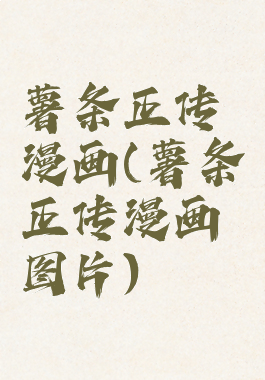 薯条正传
漫画(薯条
正传漫画
图片)